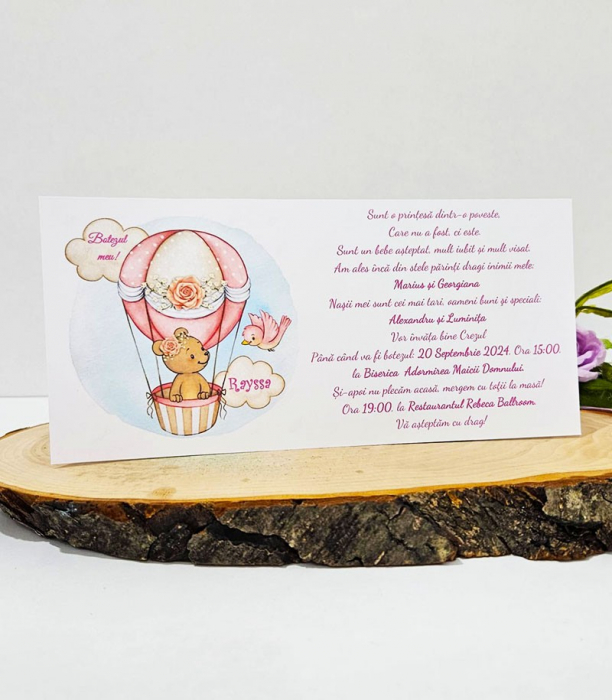 Botezul
meu!
Rayssa
Sunt o prințesă dintr-o poveste,
Care nu a fost, ci este.
Sunt un bebe așteptat, mult iubit și mult visat.
Am ales încă din stele părinți dragi inimii mele:
Marius și Georgiana
Nașii mei sunt cei mai tari, oameni buni și speciali:
Alexandru și Luminița
Vor învăța bine Crezul
Până când va fi botezul: 20 Septembrie 2024, Ora 15:00,
la Biserica Adormirea Maicii Domnului.
Și-apoi nu plecăm acasă, mergem cu toții la masă!
Ora 19:00, la Restaurantul Rebeca Ballroom.
Vă așteptăm cu drag!